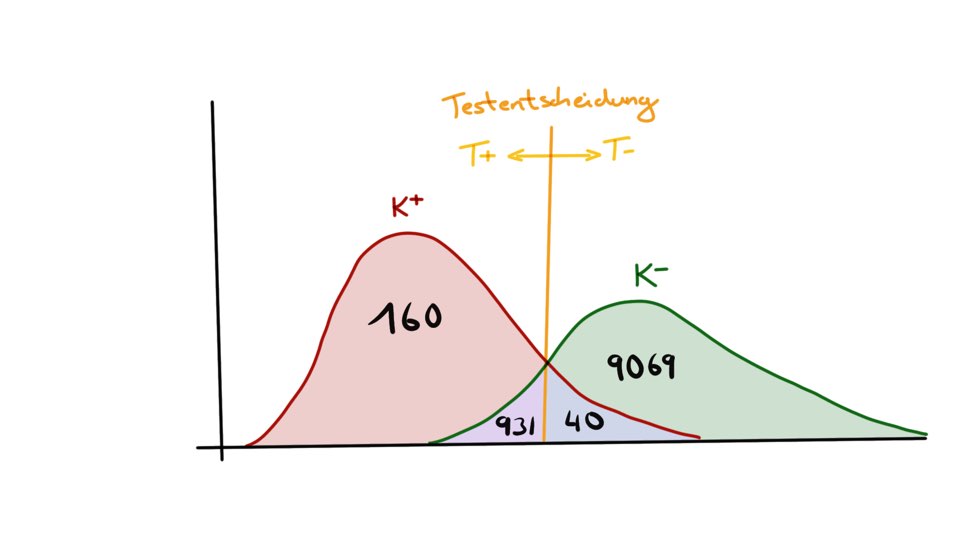 Testentscheidung
T+ T-
K+
K-
160
9069
931 40